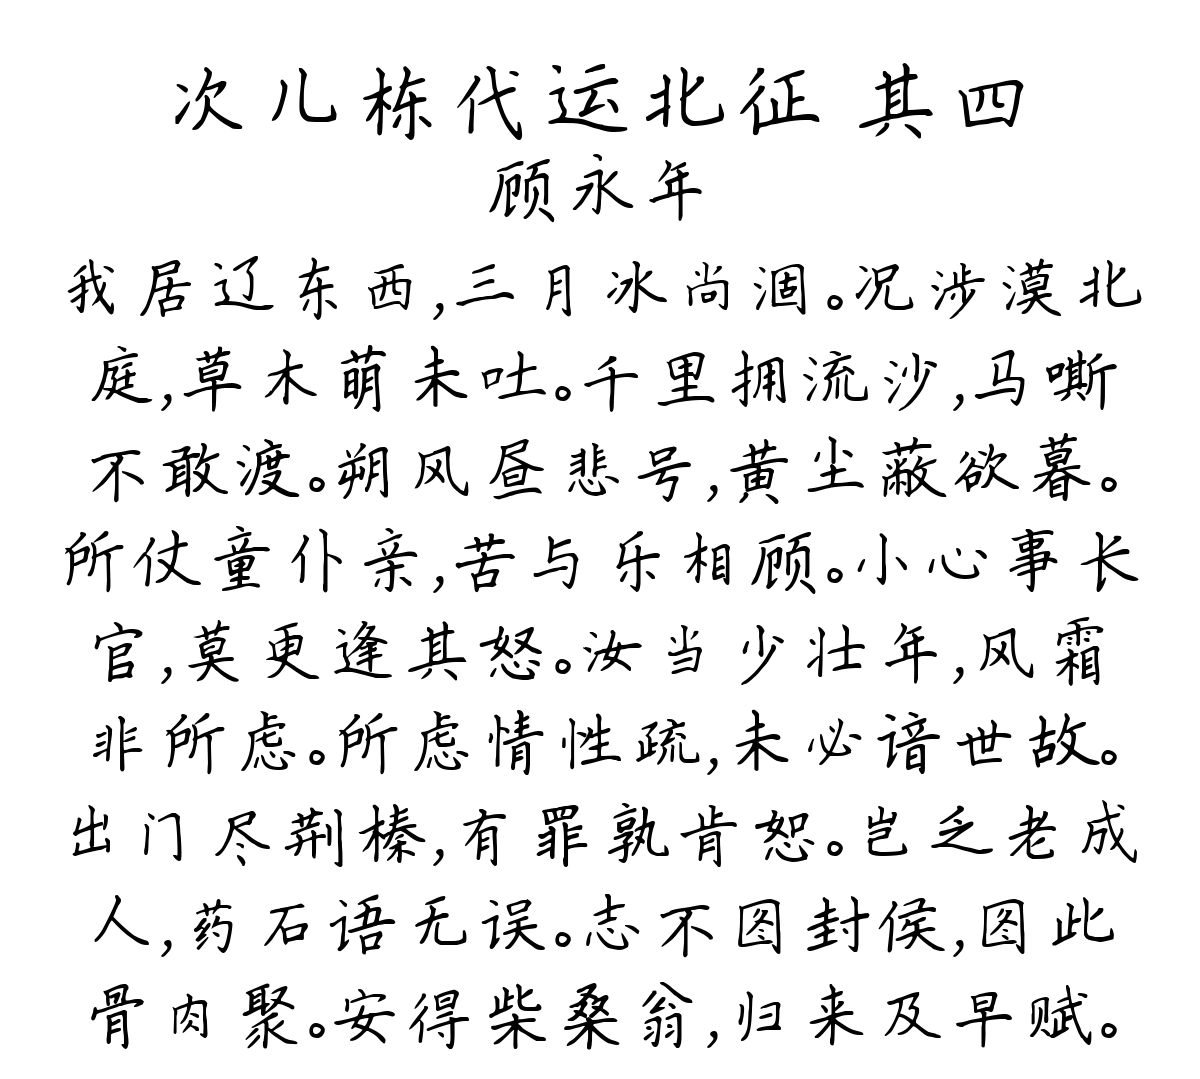 次儿栋代运北征 其四
顾永年
我居辽东西,三月冰尚涸。况涉漠北
庭,草木萌未吐。千里拥流沙,马嘶
不敢渡。朔风昼悲号,黄尘蔽欲暮。
所仗童仆亲,苦与乐相顾。小心事长
官,莫更逢其怒。汝当少壮年,风霜
非所虑。所虑情性疏,未必谙世故。
出门尽荆榛,有罪孰肯恕。岂乏老成
人,药石语无误。志不图封侯,图此
骨肉聚。安得柴桑翁,归来及早赋。